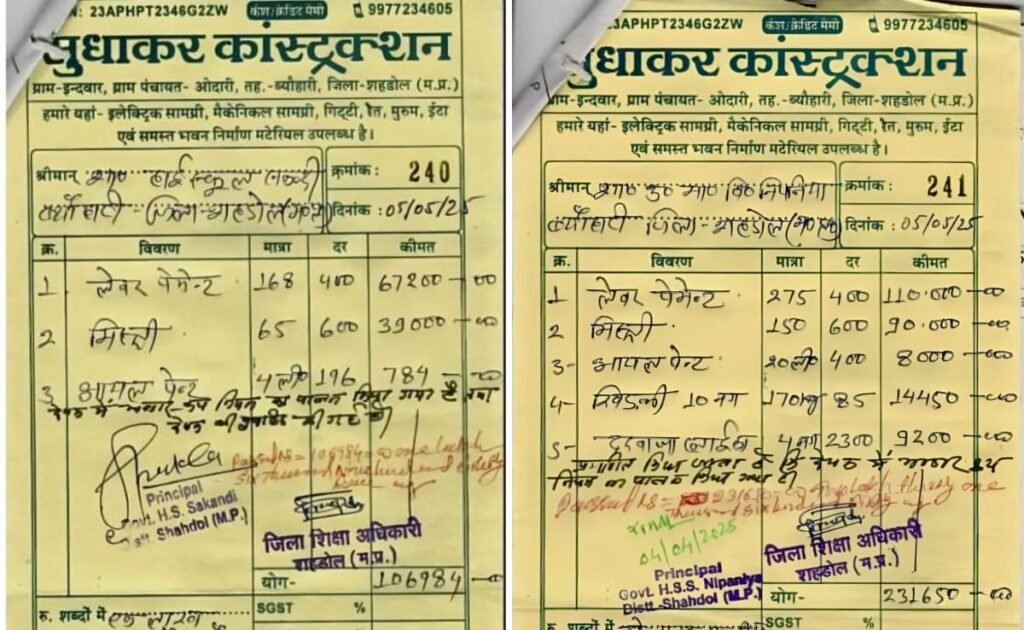 N: 23APHPT2346G2ZW कैश/क्रेडिट मेमो 9977234605
सुधाकर कांस्ट्रक्शन
ग्राम-इन्दवार, ग्राम पंचायत- ओदारी, तह.-ब्यौहारी, जिला-शहडोल (म.प्र.)
हमारे यहां- इलेक्ट्रिक सामग्री, मैकेनिकल सामग्री, गिट्टी, रेत, मुरुम, ईटा
एवं समस्त भवन निर्माण मटेरियल उपलब्ध है।
श्रीमान् शास० हाई स्कूल सकन्दी
क्रमांक : 240
ब्यौहारी जिला-शहडोल (म०प्र०)
दिनांक : 05/05/25
क्र. विवरण मात्रा दर कीमत
1 लेबर पेमेन्ट 168 400 67200-00
2 मिस्त्री 65 600 39000-00
3 आयल पेन्ट 4 ली० 196 784-00
Principal
Govt. H.S. Sakandi
Distt. Shahdol (M.P.)
Passed Rs = 106984=00 one lakh
six thousand nine hundred and eighty
four
जिला शिक्षा अधिकारी
शहडोल (म.प्र.)
योग- 106984-00
रु. शब्दों में एक लाख
SGST %
23APHPT2346G2ZW कैश/क्रेडिट मेमो 9977234605
सुधाकर कांस्ट्रक्शन
ग्राम-इन्दवार, ग्राम पंचायत- ओदारी, तह.-ब्यौहारी, जिला-शहडोल (म.प्र.)
हमारे यहां- इलेक्ट्रिक सामग्री, मैकेनिकल सामग्री, गिट्टी, रेत, मुरुम, ईटा
एवं समस्त भवन निर्माण मटेरियल उपलब्ध है।
श्रीमान् शास० उ० मा० वि० निपनिया
क्रमांक : 241
ब्यौहारी जिला-शहडोल (म०प्र०)
दिनांक : 05/05/25
क्र. विवरण मात्रा दर कीमत
1 लेबर पेमेन्ट 275 400 110.000-00
2 मिस्त्री 150 600 90.000-00
3- आयल पेन्ट 20 ली० 400 8000-00
4- खिड़की 10 नग 170 kg 85 14450-00
5- दरवाजा 4 नग 2300 9200-00
प्रमाणित किया जाता है कि
04/04/2025
Principal
Govt. H.S.S. Nipaniya
Distt -Shahdol (M.P.)
जिला शिक्षा अधिकारी
शहडोल (म.प्र.)
योग- 231650-00
रु. शब्दों में
SGST %